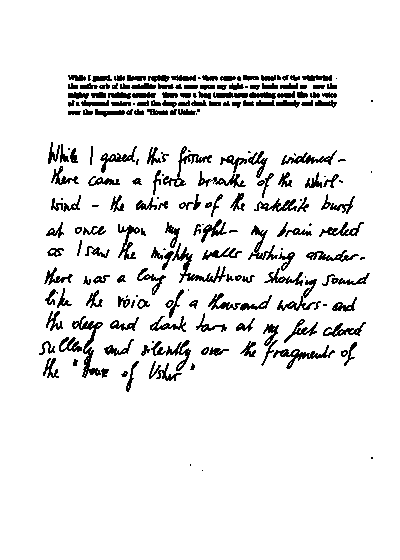 While I gazed, this fissure rapidly widened - there came a fierce breath of the whirlwind -
the entire orb of the satellite burst at once upon my sight - my brain reeled as I saw the
mighty walls rushing asunder - there was a long tumultuous shouting sound like the voice
of a thousand waters - and the deep and dank tarn at my feet closed sullenly and silently
over the fragments of the "House of Usher."
While I gazed, this fissure rapidly widened -
there came a fierce breathe of the whirl-
wind - the entire orb of the satellite burst
at once upon my sight - my brain reeled
as I saw the mighty walls rushing asunder -
there was a long tumultuous shouting sound
like the voice of a thousand waters - and
the deep and dank tarn at my feet closed
sullenly and silently over the fragments of
the "House of Usher"